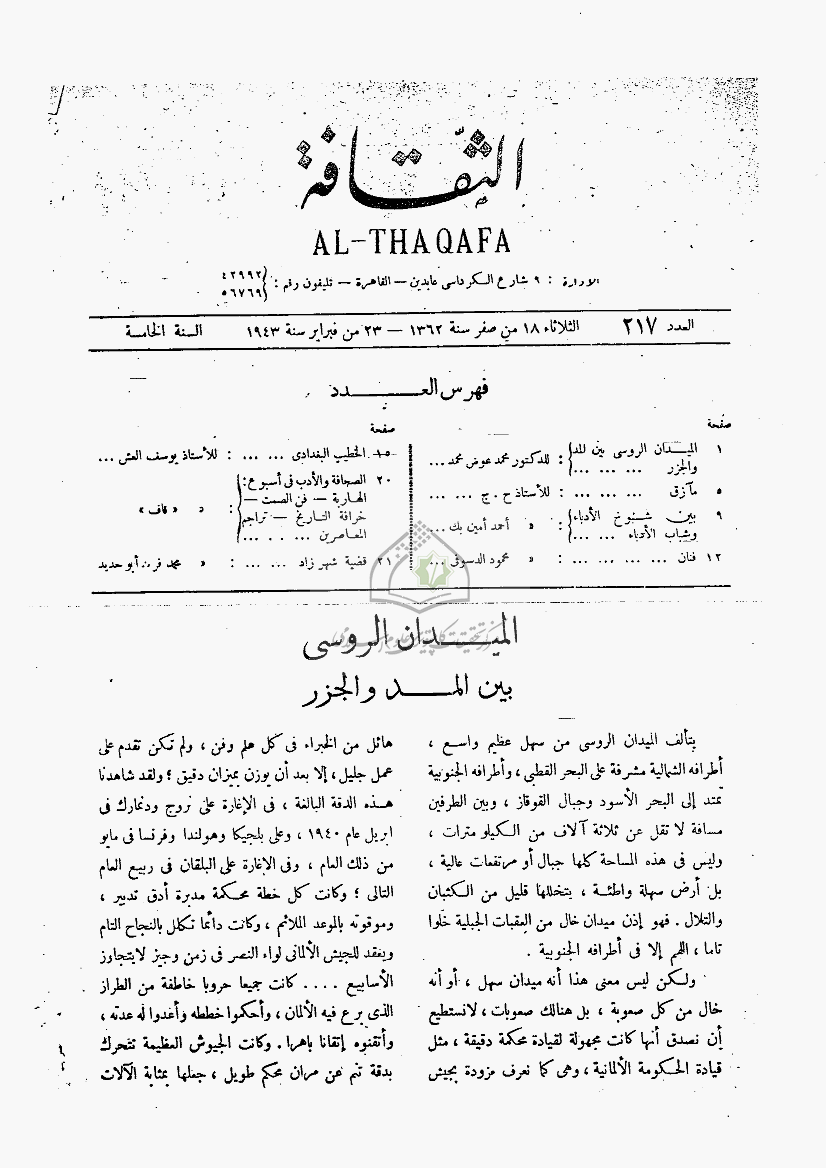 الثقافة
AL-THAQAFA
الادارة : ٩ شارع الكرداسى عابدين — القاهرة — تليفون رقم : { ٤٢٩٩٢ ٥٦٧٦٩
العدد ٢١٧ الثلاثاء ١٨ من صفر سنة ١٣٦٢ — ٢٣ من فبراير سنة ١٩٤٣ السنة الخامسة
فهرس العدد
صفحة
١ الميدان الروسى بين المد
والجزر ... ... ... } : للدكتور محمد عوض محمد ...
٥ مآزق ... ... ... : للأستاذ ح . ج ... ...
٩ بين شيوخ الأدباء
وشباب الأدباء ... ... } : » أحمد أمين بك ...
١٢ فنان ... ... ... ... : » محمود الدسوقى ...
صفحة
١٥ الخطيب البغدادى ... ... : للأستاذ يوسف العش ...
٢٠ الصحافة والأدب فى أسبوع :
الهاربة — فن الصمت —
خرافة التاريخ — تراجم
المعاصرين ... . . ... } : » « قاف »
٢١ قضية شهر زاد ... ... : » محمد فريد أبو حديد
الميدان الروسى
بين المد والجزر
يتألف الميدان الروسى من سهل عظيم واسع ،
أطرافه الشمالية مشرفة على البحر القطبى ، وأطرافه الجنوبية
تمتد إلى البحر الأسود وجبال القوقاز ، وبين الطرفين
مسافة لا تقل عن ثلاثة آلاف من الكيلو مترات ،
وليس فى هذه المساحة كلها جبال أو مرتفعات عالية ،
بل أرض سهلة واطئة ، يتخللها قليل من الكثبان
والتلال . فهو إذن ميدان خال من العقبات الجبلية خلوا
تاما ، اللهم إلا فى أطرافه الجنوبية .
ولكن ليس معنى هذا أنه ميدان سهل ، أو أنه
خال من كل صعوبة ، بل هنالك صعوبات ، لانستطيع
أن نصدق أنها كانت مجهولة لقيادة محكمة دقيقة ، مثل
قيادة الحكومة الألمانية ، وهى كما نعرف مزودة بجيش
هائل من الخبراء فى كل علم وفن ، ولم تكن تقدم على
عمل جليل ، إلا بعد أن يوزن بميزان دقيق ؛ ولقد شاهدنا
هذه الدقة البالغة ، فى الإغارة على نروج ودنمارك فى
ابريل عام ١٩٤٠ ، وعلى بلجيكا وهولندا وفرنسا فى مايو
من ذلك العام ، وفى الإغارة على البلقان فى ربيع العام
التالى ؛ وكانت كل خطة محكمة مدبرة أدق تدبير ،
وموقوتة بالموعد الملائم ، وكانت دائما تكلل بالنجاح التام
ويعقد للجيش الألمانى لواء النصر فى زمن وجيز لايتجاوز
الأسابيع .... كانت جميعا حروبا خاطفة من الطراز
الذى برع فيه الألمان ، وأحكموا خططه وأعدوا له عدته ،
وأتقنوه إتقانا باهرا . وكانت الجيوش العظيمة تتحرك
بدقة تنم عن مران محكم طويل ، جعلها بمثابة الآلات